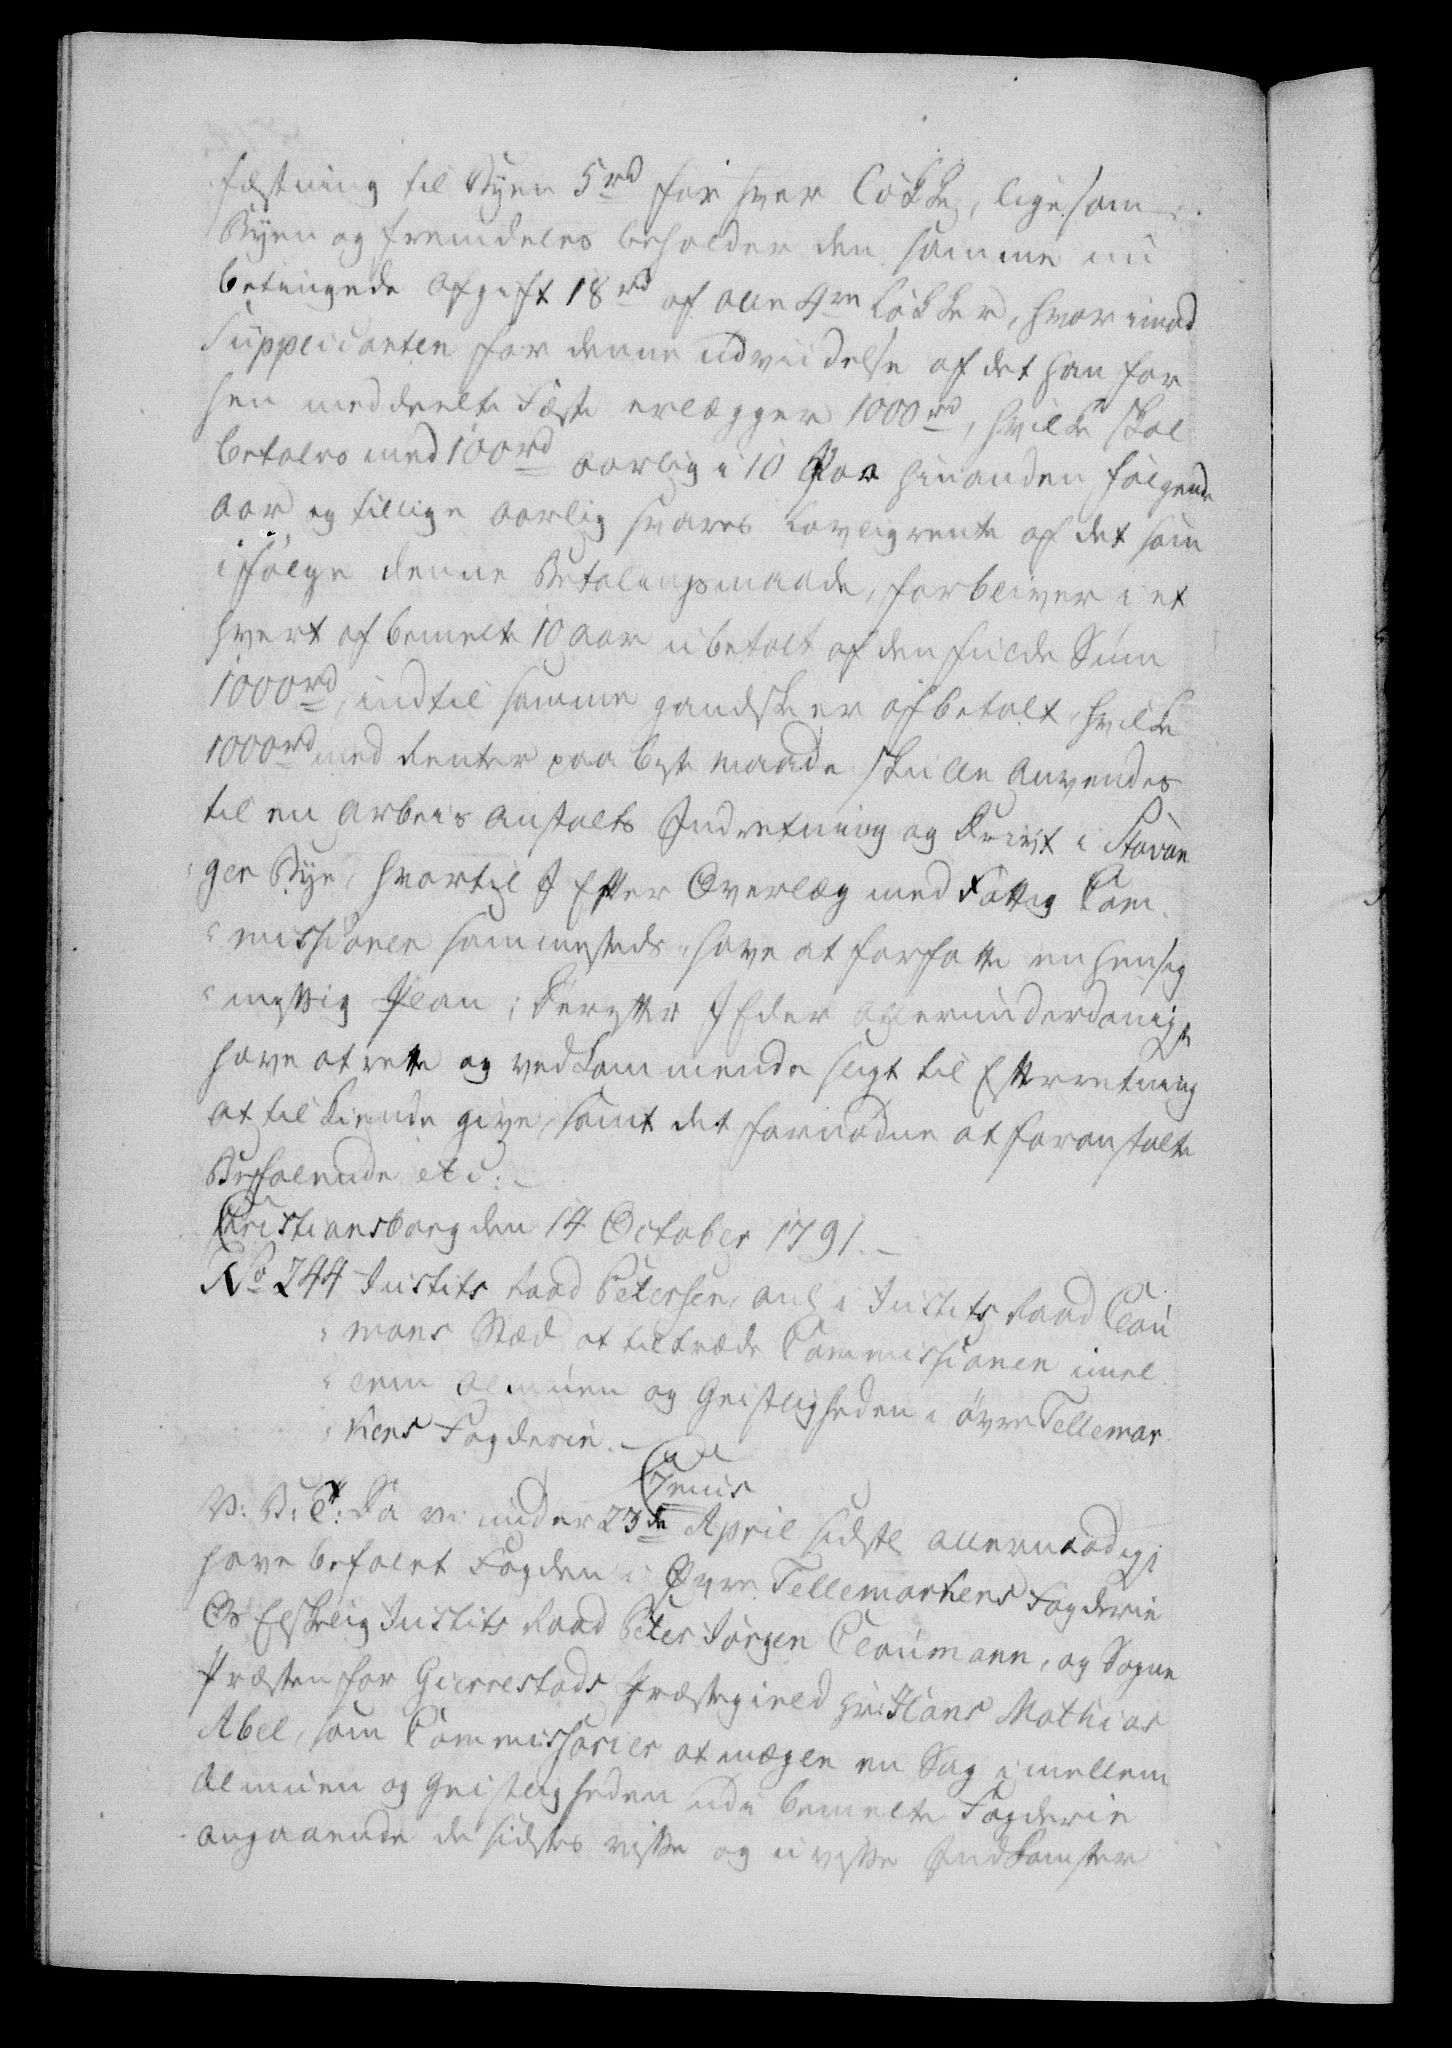 fæstning til Byen 5rd for hver Løkke, ligesom
Byen og fremdeles beholder den samme nu
betingede Afgift 18rd af alle 4re Løkker, hvorimod
Supplicanten for denne udviidelse af det ham for
hen meddeelte Fæste erlægger 1000rd, hvilke skal
betales med 100rd aarlig i 10 paa hinanden følgende
Aar og tillige aarlig svares Lovlig rente af det som
ifølge denne Betalingsmaade, forbliver i et
hvert af bemelte 10 Aar ubetalt af den fulde Sum
1000rd, indtil samme gandske er afbetalt, hvilke
1000rd med Renter paa beste maade skulle anvendes
til en Arbeids Anstalts Indretning og Drivt i Stavan
ger Bye, hvortil I efter Overlæg med Fattig Com
missionen sammesteds have at forfatte en hensig
mæssig Plan; Derefter I Eder allerunderdanigst
have at rette og vedkommende sligt til Efterretning
at tilkiende give, samt det fornødne at foranstalte
Befalende etc:
Christiansborg den 14 October 1791.
No 244 Justits Raad Petersen, ant i Justits Raad Clau
mans Stæd at tiltræde Commissionen imel
lem Almuen og Geistligheden i øvre Tellemar
kens Fogderie.
V: V: C: Da vi under 23de April sidstl allernaadigst
have befalet Fogden i Øvre Tellemarkens Fogderie
Os Elskelig Justits Raad Peter Jørgen Claumann, og Sogne
Præsten for Gierrestads Præstegield Hr: Hans Mathias
Abel, som Commissarier at mægle en Sag imellem
Almuen og Geistligheden udi bemelte Fogderie
angaaende de sidstes visse og uvisse Indkomster